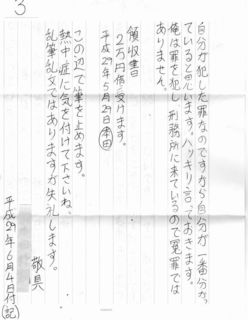 3
自分が犯した罪なのですから自分が一番分かっ
ていると思います。ハッキリ言っておきます。
俺は罪を犯し刑務所に来ているので冤罪では
ありません。
領収書
2万円借り受けます。
平成29年5月29日 本田
この辺で筆を止めます。
熱中症に気を付けて下さいね。
乱筆乱文ではありますが失礼します。
敬具
平成29年6月4日付(記)